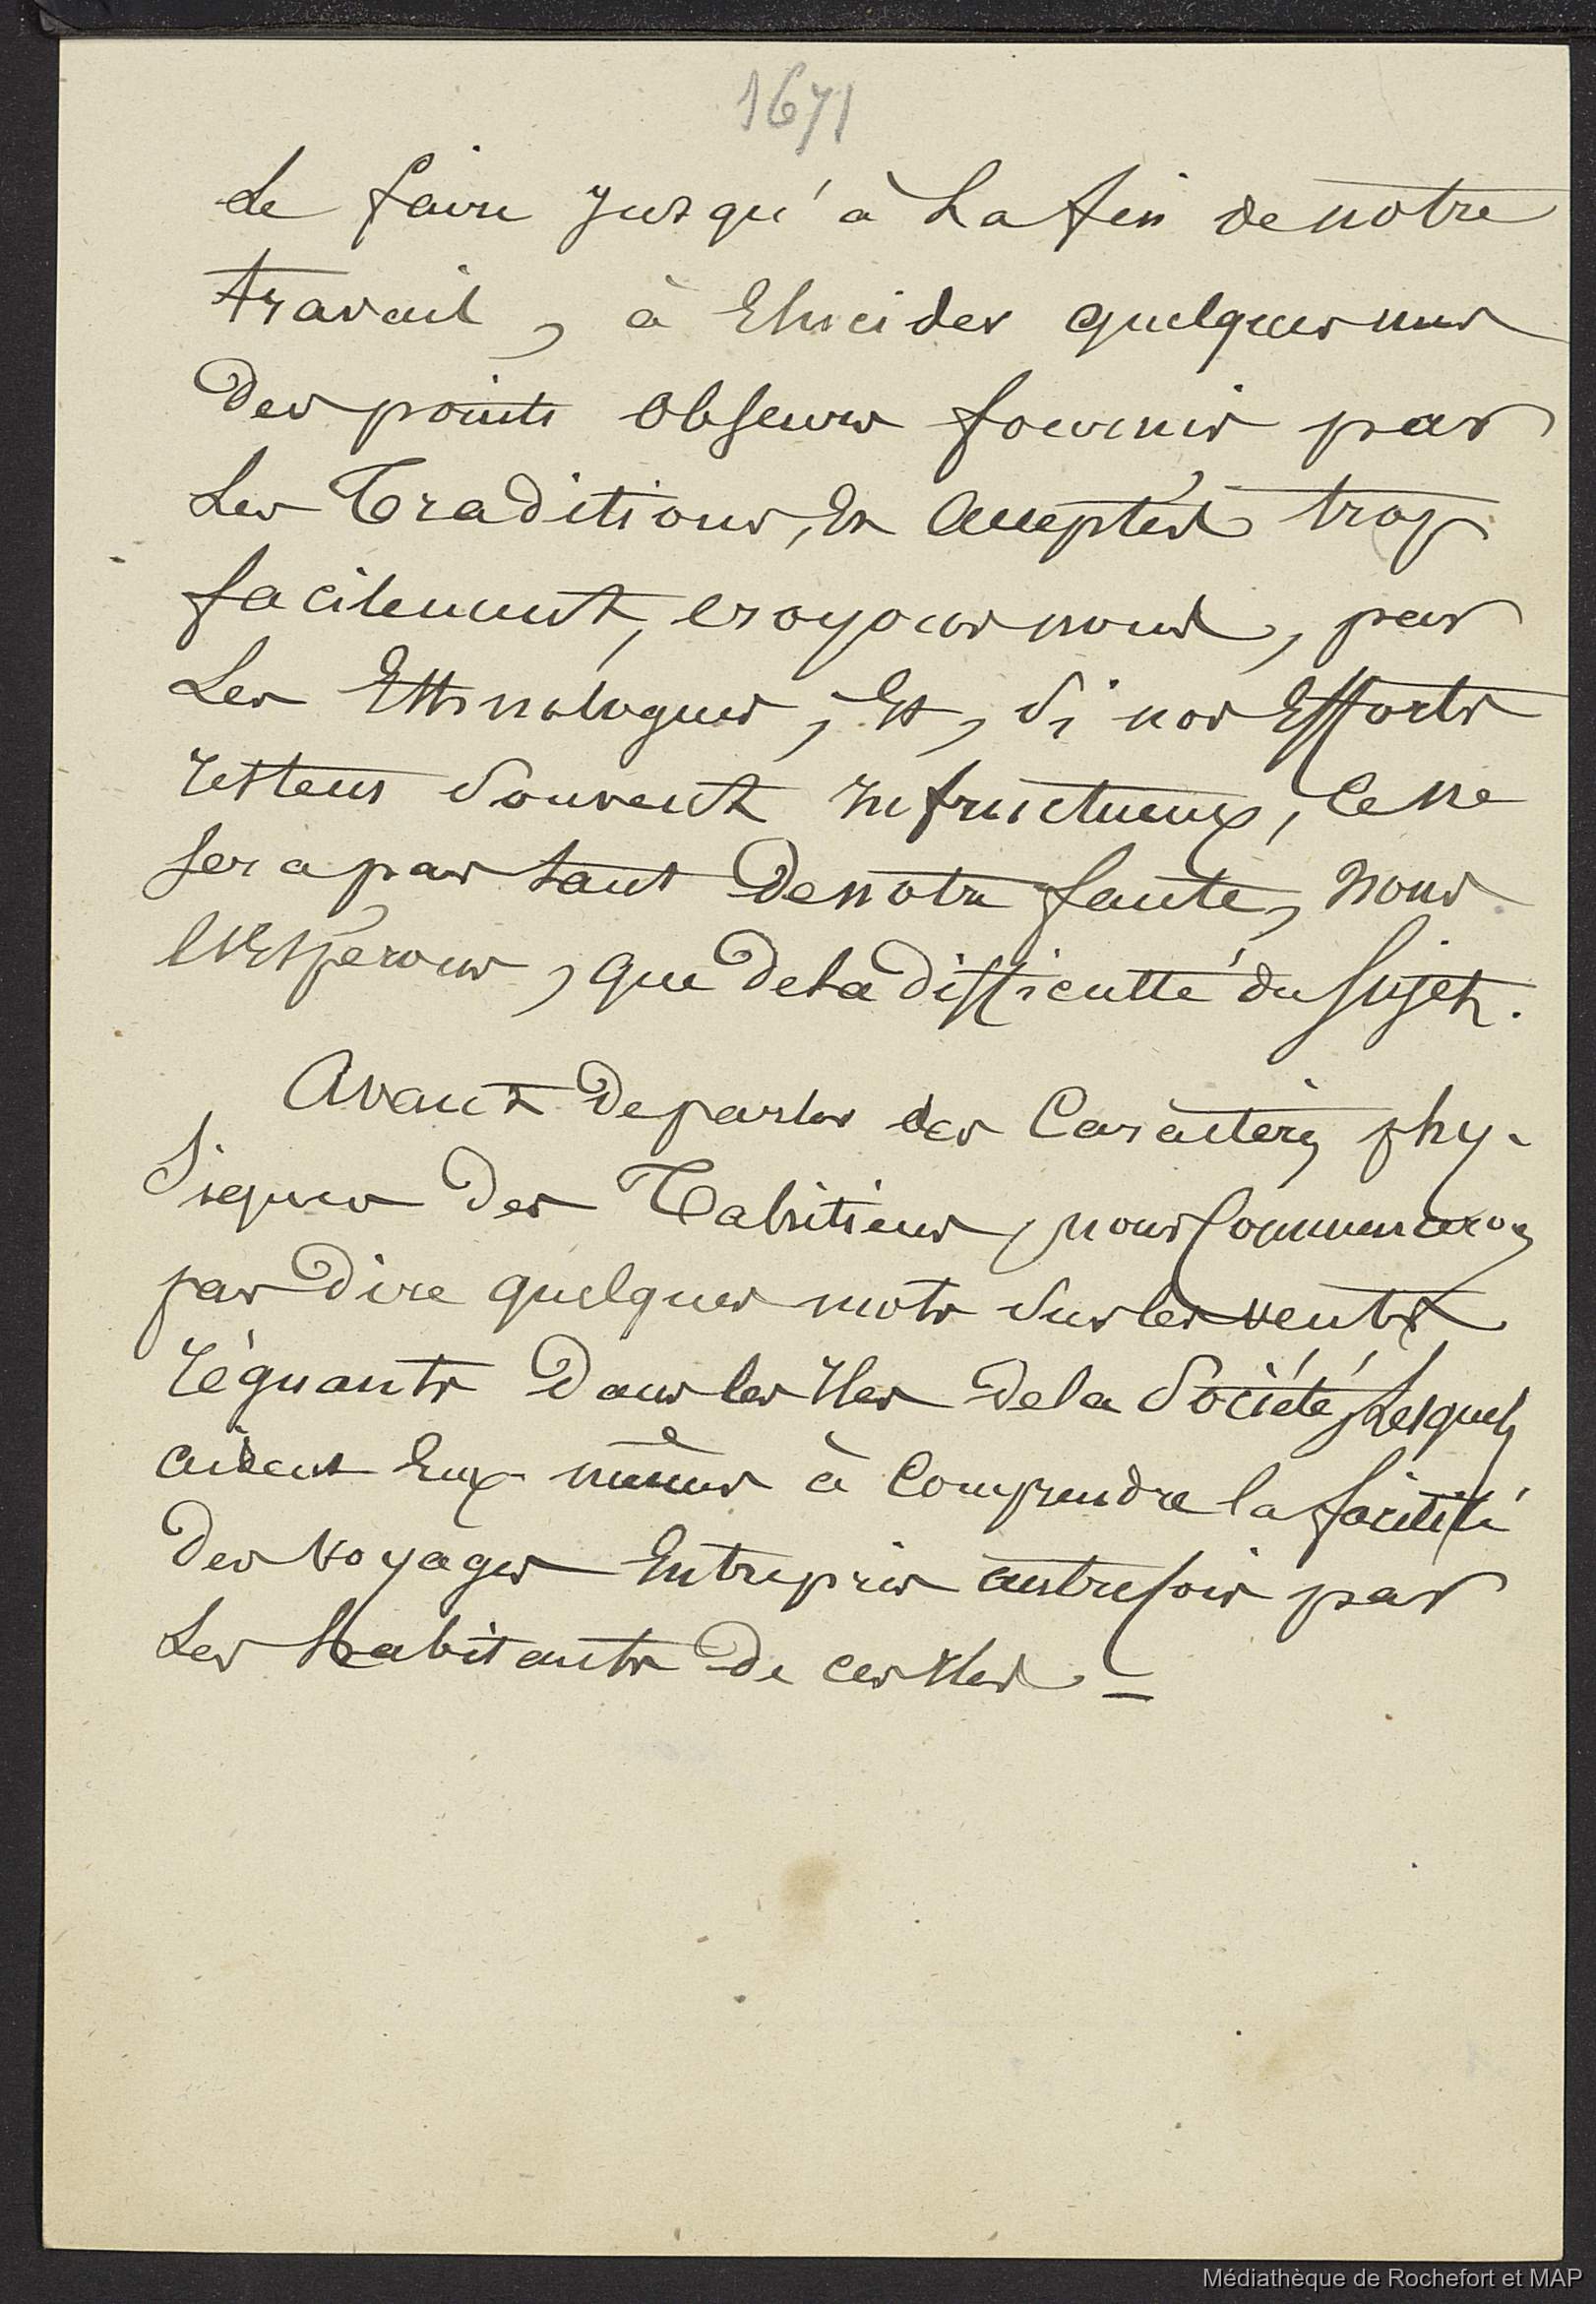 1671
de faire jusqu'à la fin de notre
travail, à Elucider quelques uns
des points obscurs fournis par
les Traditions, Et acceptés trop
facilement, croyons nous, par
les Ethnologues; Et, si nos Efforts
restent souvent infructueux, ce ne
sera pas tant de notre faute, nous
l'Espérons, que de la difficulté du sujet.
Avant de parler des Caractères phy-
siques des Tahitiens, nous Commencerons
par dire quelques mots sur les vents
régnants dans les Iles de la Société, lesquels
aident Eux-mêmes à Comprendre la facilité
des voyages Entrepris autrefois par
les habitants de ces Iles. _
Médiathèque de Rochefort et MAP